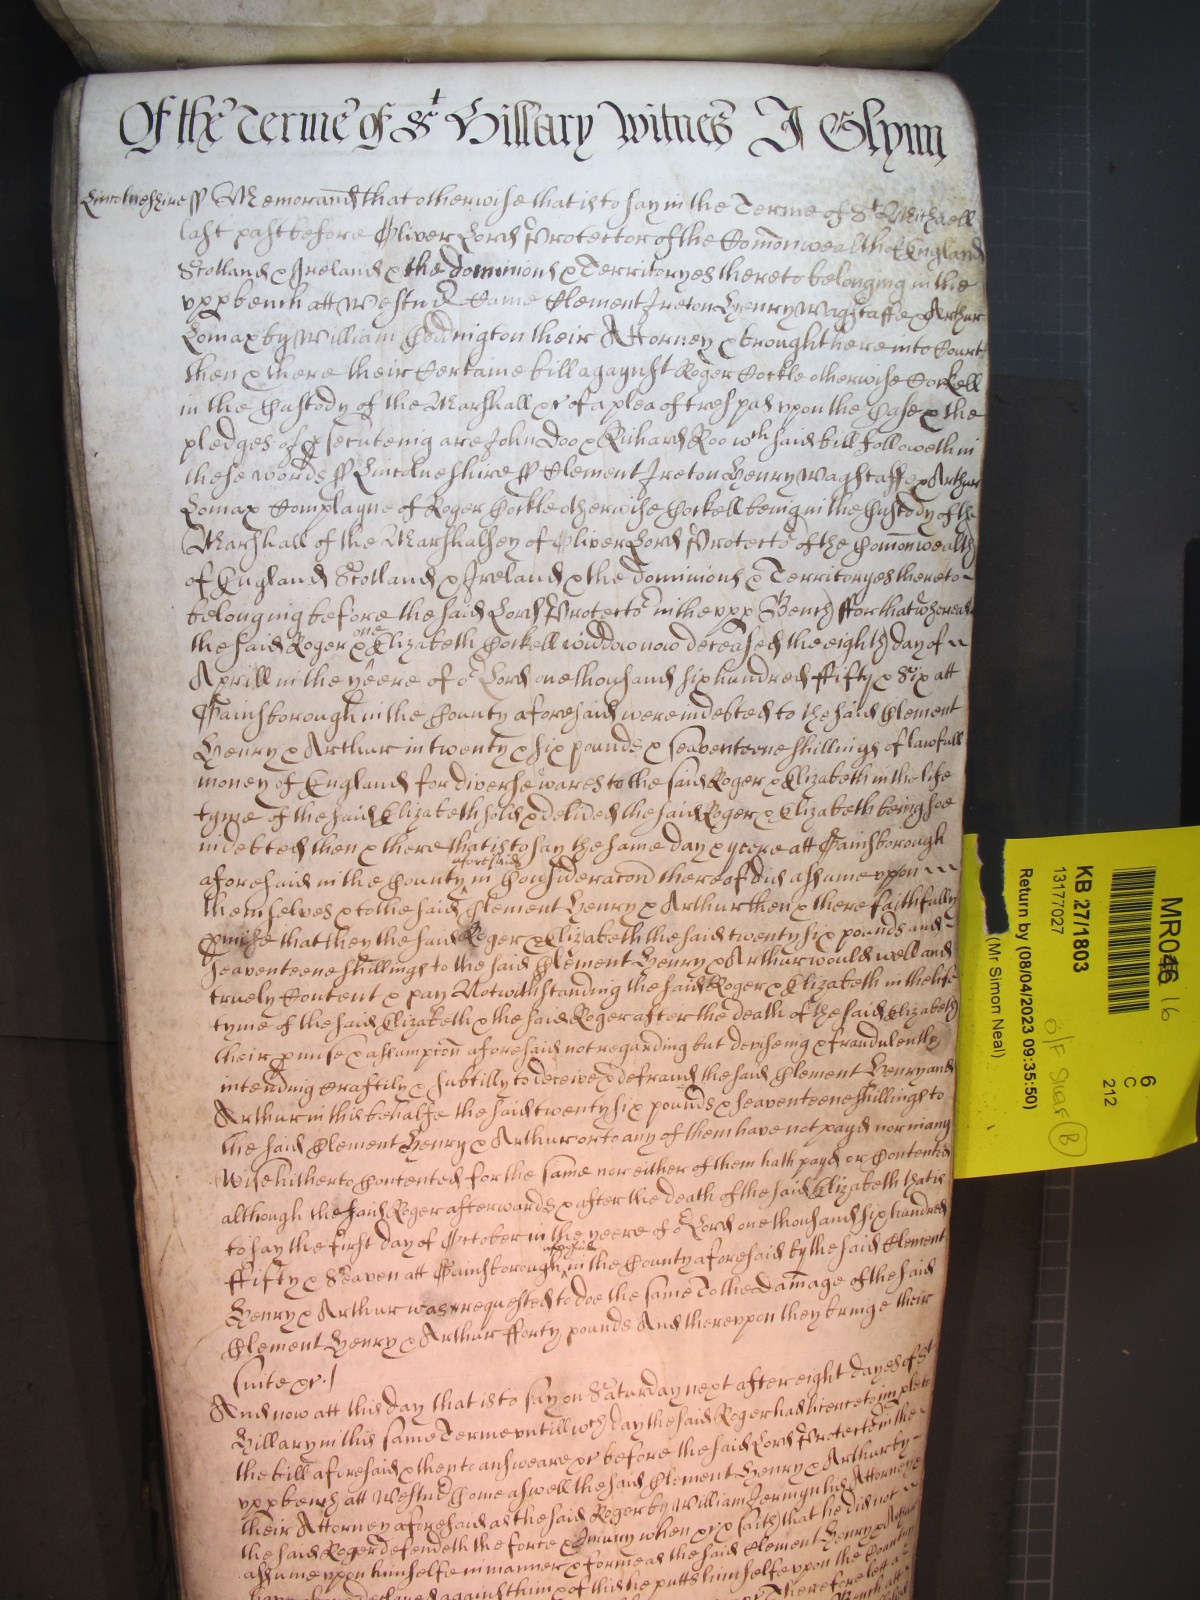 Of the Terme of St Hillary Witnes J Glynn
Lincolneshire ss Memorand that otherwise that is to say in the Terme of St Michaell
last past before Oliver Lord Protector of the Comonwealth of England
Scotland & Ireland & the dominions & Territoryes thereto belonging in the
upp bench att Westm Came Clement Ireton Henry Wagstaffe & Arthur
Lomax by William their Attorney & brought here into Court
then & there their Certaine bill agaynst Roger Cockle otherwise Cockell
in the Custody of the Marshall &c of a plea of trespas uppon the Case & the
pledges of psecuteing are John Doo & Richard Roo wch said bill followeth in
these words ss Lincolneshire ss Clement Ireton Henry Wagstaffe & Arthur
Lomax Complayne of Roger Cockle otherwise Cockell being in the Custody of the
Marshall of the Marshalsey of Oliver Lord Protector of the Comonwealth
of England Scotland & Ireland & the dominions & Territoryes thereto
belonging before the said Lord Protector in the upp Bench ffor that whereas
the said Roger & one Elizabeth Cockell widdow now deceased the eighth day of
Aprill in the yeere of or Lord one thousand six hundred ffifty & Six att
Gainsborough in the County aforesaid were indebted to the said Clement
Henry & Arthur in twenty & six pounds & seaventeene shillings of lawfull
money of England for diverse wares to the said Roger & Elizabeth in the life
tyme of the said Elizabeth sold & delivered the said Roger & Elizabeth being soe
indebted then & there that is to say the same day & yeere att Gainsborough
aforesaid in the County aforesaid in Consideracon thereof did assume uppon
themselves & to the said Clement Henry & Arthur then & there faithfully
pmise that they the said Roger & Elizabeth the said twenty six pounds and
seaventeene shillings to the said Clement Henry & Arthur would well and
truely Content & pay Notwithstanding the said Roger & Elizabeth in the life
tyme of the said Elizabeth & the said Roger after the death of the said Elizabeth
their pmise & assumpcon aforesaid not regarding but deviseing & fraudulently
intending craftily & subtilly to deceive & defraud the said Clement Henry and
Arthur in this behalfe the said twenty six pounds & seaventeene shillings to
the said Clement Henry & Arthur or to any of them have not payd nor in any
wise hitherto Contented for the same nor either of them hath payd or Contented
although the said Roger afterwards & after the death of the said Elizabeth that is
to say the first day of October in the yeere of or Lord one thousand six hundred
ffifty & Seaven att Gainsborough aforesaid in the County aforesaid by the said Clement
Henry & Arthur was requested to doe the same To the Damage of the said
Clement Henry & Arthur fforty pounds And thereupon they bringe their
suite &c
And now att this day that is to say on Saturday next after eight dayes of St
Hillary in this same Terme untill wch day the said Roger had licence to imparle
the bill aforesaid & then to answeare &c before the said Lord Protector in the
upp bench att Westm Come aswell the said Clement Henry & Arthur by
their Attorney aforesaid as the said Roger by William Jermyn his Attorney &
the said Roger defendeth the force & Iniury when &c & saith that he did not
assume upon himselfe in manner & forme as the said Clement Henry & Arthur
have above declared against him & of this he putts himselfe upon the Country
Therefore lett a
MR046 16
KB 27/1803
13177027
Return by (08/04/2023 09:35:50)
(Mr Simon Neal)
6
C
212
O/F
B